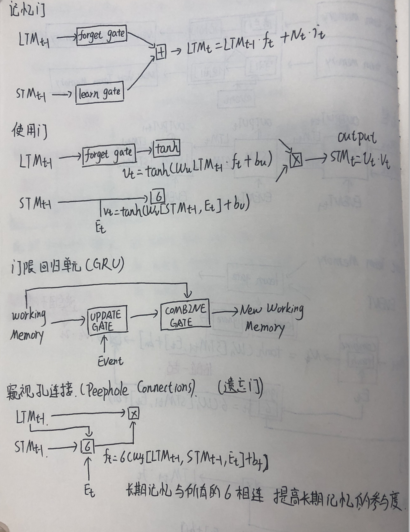 记忆门
LTMt-1 → forget gate
+ → LTMt = LTMt-1 · ft + Nt · it
STMt-1 → learn gate
使用门
output
LTMt-1 → forget gate → tanh
x → STMt = Ut · Vt
Ut = tanh(Wu LTMt-1 · ft + bu)
STMt-1 → 6
Vt = tanh(Wv[STMt-1, Et] + bv)
Et
门限回归单元(GRU)
working Memory
UPDATE GATE
COMBINE GATE
New Working Memory
Event
窥视孔连接 (Peephole Connections) (遗忘门)
LTMt-1 → x
STMt-1 → 6
ft = 6(Wf[LTMt-1, STMt-1, Et] + bf)
Et
长期记忆与所有的6相连 提高长期记忆的参与度